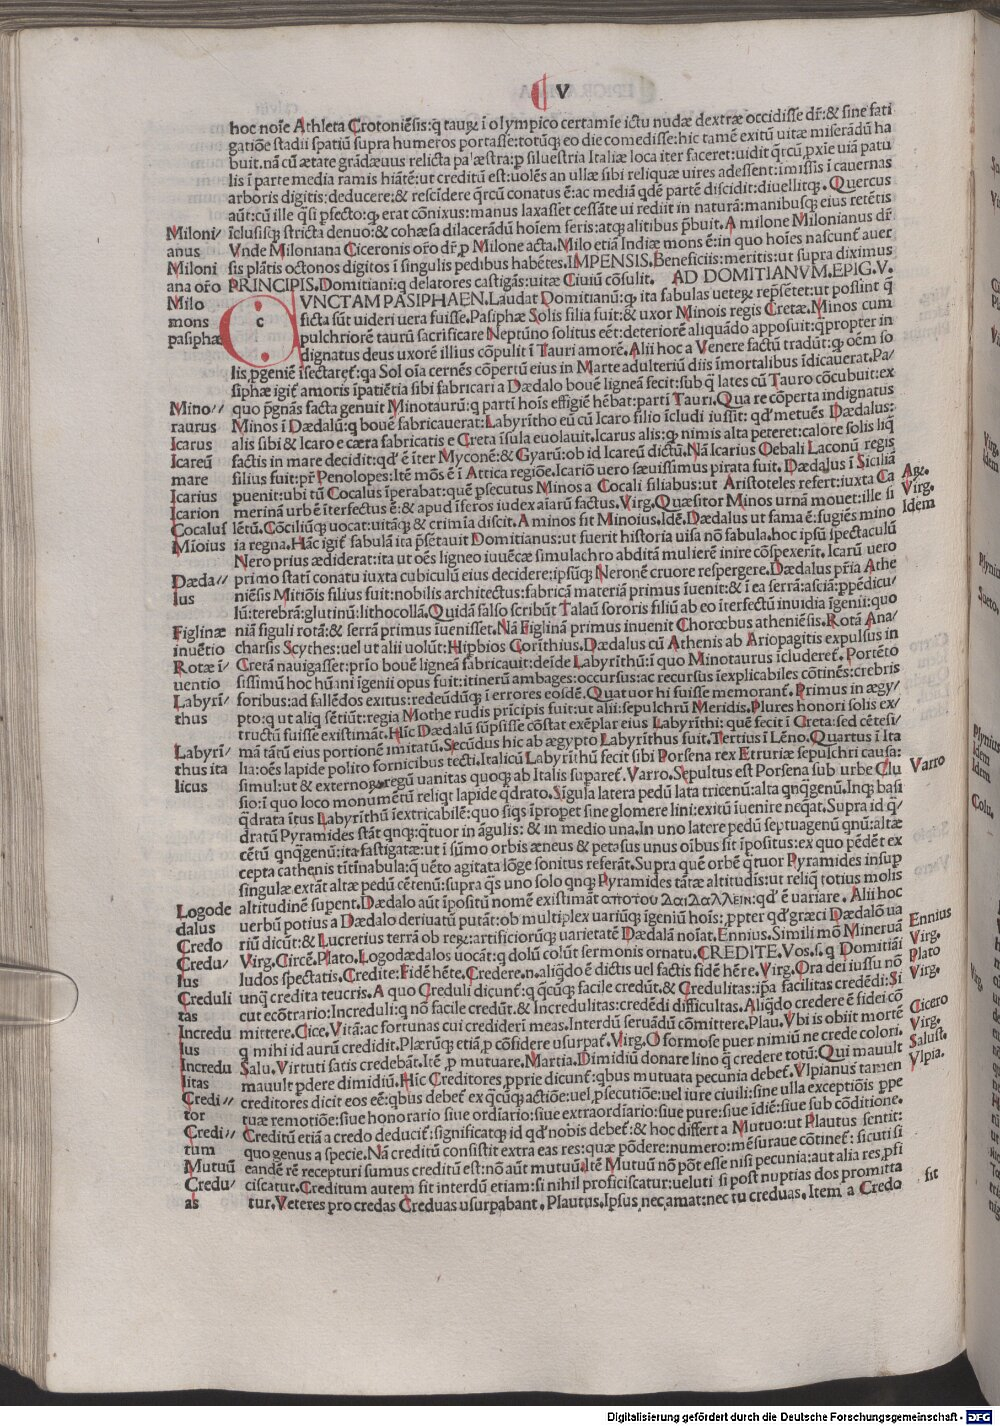 V
hoc noīe Athleta Crotoniēsis:q tauꝝ ī olympico certamīe ictu nudæ dextræ occidisse dr̄:& sine fati
gatiōe stadii spatiū supra humeros portasse:totūqꝫ eo die comedisse:hic tamē exitū uitæ miserādū ha
buit.nā cū ætate grādæuus relicta palæstra:ꝑ siluestria Italiæ loca iter faceret:uidit q̄rcū ꝓxīe uiā patu
lis ī parte media ramis hiātē:ut creditū est:uolēs an ullæ sibi reliquæ uires adessent:īmissis ī cauernas
arboris digitis:deducere:& rescīdere q̄rcū conatus ē:ac mediā qdē partē discidit:diuellitqꝫ.Quercus
aūt:cū ille q̄si ꝑfecto:ꝙ erat cōnixus:manus laxasset cessāte ui rediit in naturā:manibusqꝫ eius retētis
īclusisqꝫ stricta denuo:& cohæsa dilacerādū hoīem feris:atqꝫ alitibus p̄buit.A milone Milonianus dr̄.
Vnde Miloniana Ciceronis or̄o dr̄ ꝑ Milone acta.Milo etiā Indiæ mons ē:in quo hoīes nascunt̄ auer
sis plātis octonos digitos ī singulis pedibus habētes.IMPENSIS.Beneficiis:meritis:ut supra diximus
PRINCIPIS.Domitiani:q delatores castigās:uitæ Ciuiū cōsulit. AD DOMITIANVM.EPIG.V.
c
VNCTAM PASIPHAEN.Laudat Domitianū:ꝙ ita fabulas ueteꝝ rep̄sētet:ut possint q̄
ficta sūt uideri uera fuisse.Pasiphæ Solis filia fuit:& uxor Minois regis Cretæ.Minos cum
pulchriorē taurū sacrificare Neptūno solitus eēt:deteriorē aliquādo apposuit:ꝗpropter in
dignatus deus uxorē illius cōpulit ī Tauri amorē.Alii hoc a Venere factū tradūt:ꝙ oēm so
lis ꝓgeniē īsectaret̄:qa Sol oīa cernēs cōpertū eius in Marte adulteriū diis īmortalibus īdicauerat.Pa/
siphæ igit̄ amoris īpatiētia sibi fabricari a Dædalo bouē ligneā fecit:sub q̄ lates cū Tauro cōcubuit:ex
quo p̄gnās facta genuit Minotaurū:q parti hoīs effigiē hēbat:parti Tauri.Qua re cōperta indignatus
Minos ī Dædalū:ꝙ bouē fabricauerat:Labyrītho eū cū Icaro filio īcludi iussit:qd' metuēs Dædalus:
alis sibi & Icaro e cæra fabricatis e Creta īsula euolauit.Icarus alis:ꝙ nimis alta peteret:calore solis liq̄
factis in mare decidit:qd' ē īter Myconē:& Gyarū:ob id Icareū dictū.Nā Icarius Oebali Laconū regis
filius fuit:pr̄ Penolopes:Itē mōs ē ī Attica regiōe.Icariō uero sæuissimus pirata fuit.Dædalus ī Siciliā
puenit:ubi tū Cocalus īperabat:quē ꝑsecutus Minos a Cocali filiabus:ut Aristoteles refert:iuxta Ca
merinā urbē īterfectus ē:& apud īferos iudex aīarū factus.Virg.Quæsitor Minos urnā mouet:ille si
lētū.Cōciliūqꝫ uocat:uitāqꝫ & crimīa discit.A minos fit Minoius.Idē.Dædalus ut fama ē:fugiēs mino
ia regna.Hāc igit̄ fabulā ita p̄sētauit Domitianus:ut fuerit historia uisa nō fabula.hoc ipsū spectaculū
Nero prius ædiderat:ita ut oēs ligneo iuuēcæ simulachro abditā mulierē inire cōspexerīt.Icarū uero
primo statī conatu iuxta cubiculū eius decidere:ipsūqꝫ Neronē cruore respergere.Dædalus pr̄ia Athe
niēsis Mitiōis filius fuit:nobilis architectus:fabricā materiā primus īuenit:& ī ea serrā:asciā:ꝑpēdicu/
lū:terebrā:glutinū:lithocollā.Quidā falso scribūt Talaū sororis filiū ab eo īterfectū inuidia īgenii:quo
niā figuli rotā:& serrā primus īuenisset.Nā Figlinā primus inuenit Choroebus atheniēsis.Rotā Ana/
charsis Scythes:uel ut alii uolūt:Hipbios Corīthius.Dædalus cū Athenis ab Ariopagitis expulsus in
Cretā nauigasset:prīo bouē ligneā fabricauit:deīde Labyrīthū:ī quo Minotaurus īcluderet̄.Portēto
sissimū hoc hūani īgenii opus fuit:itinerū ambages:occursus:ac recursus īexplicabiles cōtinēs:crebris
foribus:ad fallēdos exitus:redeūdūqꝫ ī errores eosdē.Quatuor hi fuisse memorant̄.Primus in ægy/
pto:q ut aliq sētiūt:regia Mothe rudis prīcipis fuit:ut alii:sepulchrū Meridis.Plures honori solis ex/
tructū fuisse existimāt.Hīc Dædalū sūpsisse cōstat exēplar eius Labyrīthi:quē fecit ī Creta:sed cētesi/
mā tātū eius portionē imitatū.Secūdus hic ab ægypto Labyrīthus fuit.Tertius ī Lēno.Quartus ī Ita
lia:oēs lapide polito fornicibus tecti.Italicū Labyrīthū fecit sibi Porsena rex Etruriæ sepulchri causa:
simul:ut & externoꝝ regū uanitas quoqꝫ ab Italis suparet̄.Varro.Sepultus est Porsena sub urbe Clu
sio:ī quo loco monumētū reliqt lapide q̄drato.Sīgula latera pedū lata tricenū:alta qnqgenū.Inqꝫ basi
q̄drata ītus Labyrīthū īextricabilē:quo siqs īpropet sine glomere lini:exitū īuenire neq̄at.Supra id q̄/
dratū Pyramides stāt qnqꝫ:q̄tuor in āgulis:& in medio una.In uno latere pedū septuagenū qnū:altæ
cētū qnq̄genū:ita fastigatæ:ut ī sūmo orbis æneus & petasus unus oībus sit īpositus:ex quo pēdēt ex
cepta cathenis tītīnabula:q̄ uēto agitata lōge sonitus referāt.Supra quē orbē q̄tuor Pyramides insup
singulæ extāt altæ pedū cētenū:supra q̄s uno solo qnqꝫ Pyramides tātæ altitudīs:ut reliq̄ totius molis
altitudinē supent.Dædalo aūt īpositū nomē existimāt αποτου ΔαιΔαλλειν:qd' ē uariare. Alii hoc
uerbū potius a Dædalo deriuatū putāt:ob multiplex uariūqꝫ īgeniū hoīs:ꝓpter qd'græci Dædalō ua
riū dicūt:& Lucretius terrā ob reꝝ:artificiorūqꝫ uarietatē Dædalā noīat.Ennius.Simili mō Mineruā
Virg.Circē.Plato.Logodædalos uocāt:q dolū colūt sermonis ornatu.CREDITE.Vos.s.q Domitiāi
ludos spectatis.Credite:Fidē hēte.Credere.n.aliq̄do ē dictis uel factis fidē hēre.Virg.Ora dei iussu nō
unq̄ credita teucris.A quo Creduli dicunt̄:q q̄cūqꝫ facile credūt.& Credulitas:ipa facilitas credēdi:Si
cut ecōtrario:Increduli:q nō facile credūt.& Incredulitas:credēdi difficultas.Aliq̄do credere ē fidei cō
mittere.Cice.Vitā:ac fortunas cui crediderī meas.Interdū seruādū cōmittere.Plau.Vbi is obiit mortē
q mihi id aurū credidit.Plærūqꝫ etiā ꝑ cōsidere usurpat̄.Virg.O formose puer nimiū ne crede colori.
Salu.Virtuti satis credebāt.Itē ꝑ mutuare.Martia.Dimidiū donare lino q̄ credere totū:Qui mauult
mauult ꝑdere dimidiū.Hic Creditores ꝓprie dicunt̄:qbus mutuata pecunia debet̄.Vlpianus tamen
creditores dicit eos eē:qbus debet̄ ex q̄cūqꝫ actiōe:uel ꝑsecutiōe:uel iure ciuili:sine ulla exceptiōis ꝑpe
tuæ remotiōe:siue honorario siue ordīario:siue extraordīario:siue pure:siue īdiē:siue sub cōditione.
Creditū etiā a credo deducit̄:significatqꝫ id qd'nobis debet̄:& hoc differt a Mutuo:ut Plautus sentit:
quo genus a specie.Nā creditū consistit extra eas res:quæ pōdere:numero:mēsuraue cōtinet̄:sicuti si
eandē rē recepturi sumus creditū est:nō aūt mutuū.Itē Mutuū nō pōt esse nisi pecunia:aut alia res ꝓfi
ciscatur.Creditum autem fit interdū etiam:si nihil proficiscatur:ueluti si post nuptias dos promitta
tur.Veteres pro credas Creduas usurpabant.Plautus.Ipsus nec amat:nec tu creduas.Item a Credo
fit
Miloni/
anus
Miloni
ana or̄o
Milo
mons
pasiphæ
Mino//
taurus
Icarus
Icareū
mare
Icarius
Icarion
Cocalus
Mīoius
Dæda//
lus
Figlinæ
inuētio
Rotæ ī/
uentio
Labyrī/
thus
Labyrī/
thus ita
licus
Logode
dalus
Credo
Credu/
lus
Creduli
tas
Incredu
lus
Incredu
litas
Credi//
tor
Credi//
tum
Mutuū
Credu/
as
Virg.
Idem
Varro
Ennius
Virg.
Plato
Virg.
Cicero
Virg.
Salust.
Vlpia.
Digitalisierung gefördert durch die Deutsche Forschungsgemeinschaft - DFG